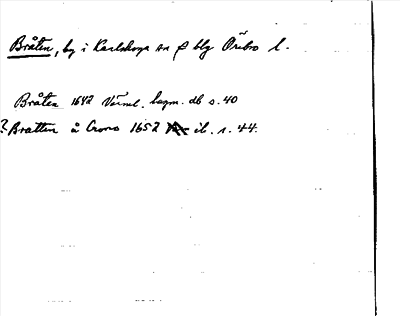 Bråten, by i Karlskoga sn o blg Örebro l.
Bråten 1642 Värml. lagm. db s. 40
? Bratten å Crono 1652 ib. s. 44.